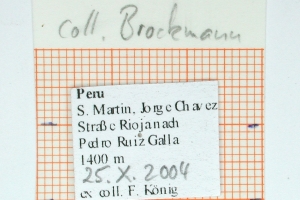 coll. Brockmann
Peru
S. Martin, Jorge Chavez
Straße Riojanach
Pedro Ruiz Galla
1400 m
25. X. 2004
ex coll. F. König